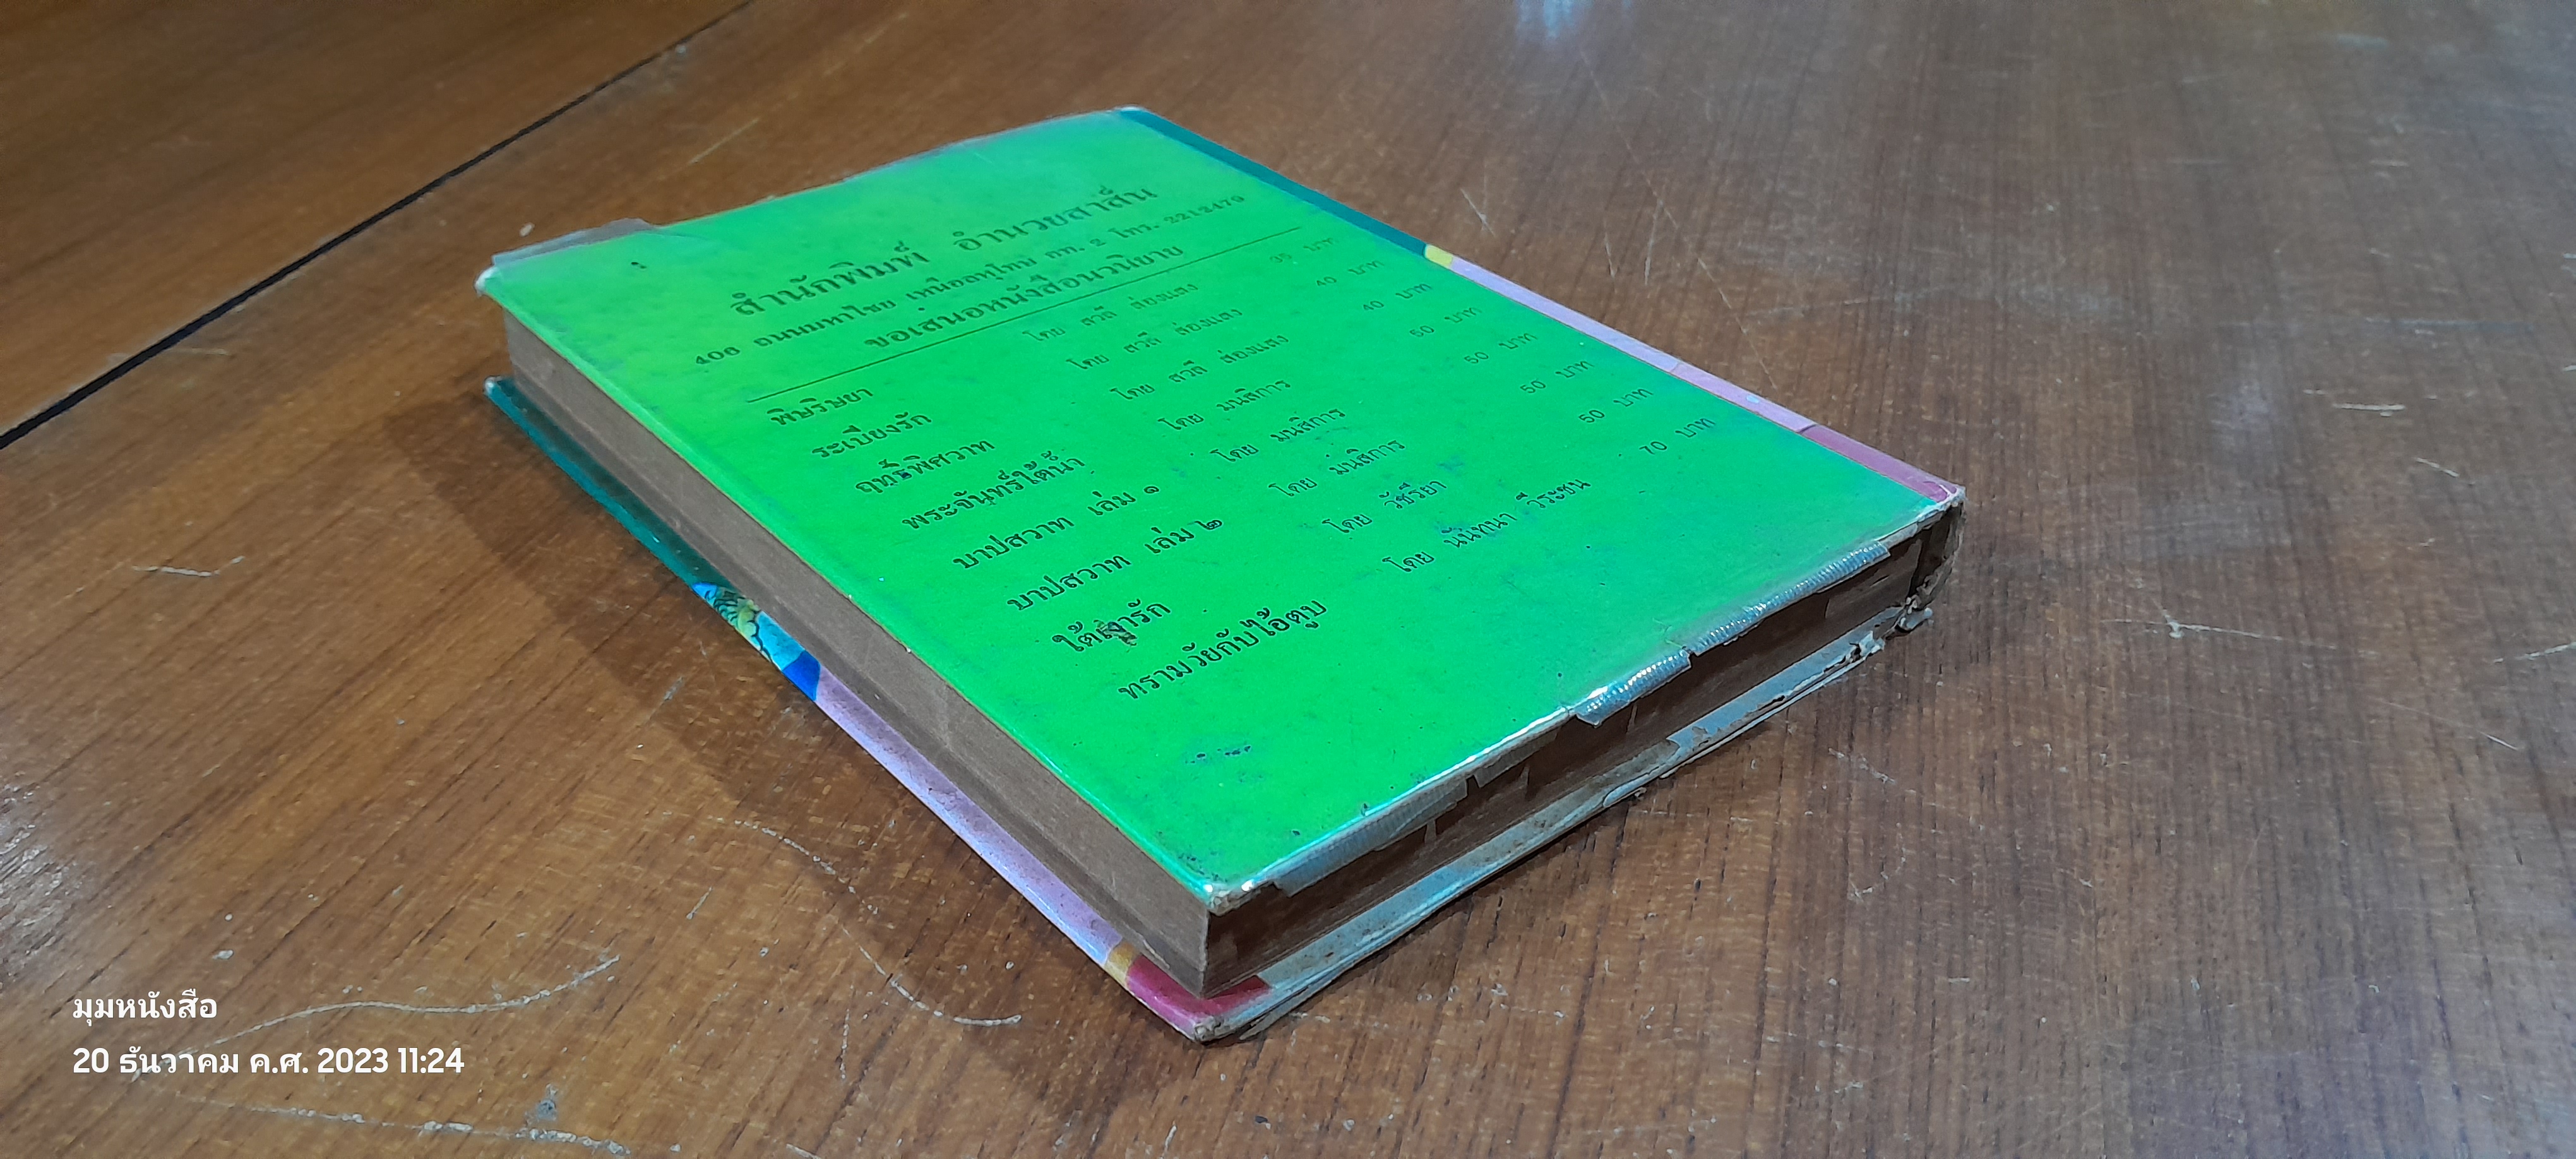 สำนักพิมพ์ อำนวยสาส์น
406 ถนนมหาไชย เหนือสหุโทน กท. 2 โทร. 2212479
ขอเสนอหนังสือนวนิยาย
พิษริษยา โดย สวลี ส่องแสง 35 บาท
ระเบียงรัก โดย สวลี ส่องแสง 40 บาท
ฤทธิ์พิศวาท โดย สวลี ส่องแสง 40 บาท
พระจันทร์ใต้น้ำ โดย มนสิการ 50 บาท
บาปสวาท เล่ม ๑ โดย มนสิการ 50 บาท
บาปสวาท เล่ม ๒ โดย มนสิการ 50 บาท
ใต้เงารัก โดย วัชรียา 50 บาท
ทรามวัยกับไอ้ตูบ โดย นันทนา วีระชน 70 บาท
มุมหนังสือ
20 ธันวาคม ค.ศ. 2023 11:24